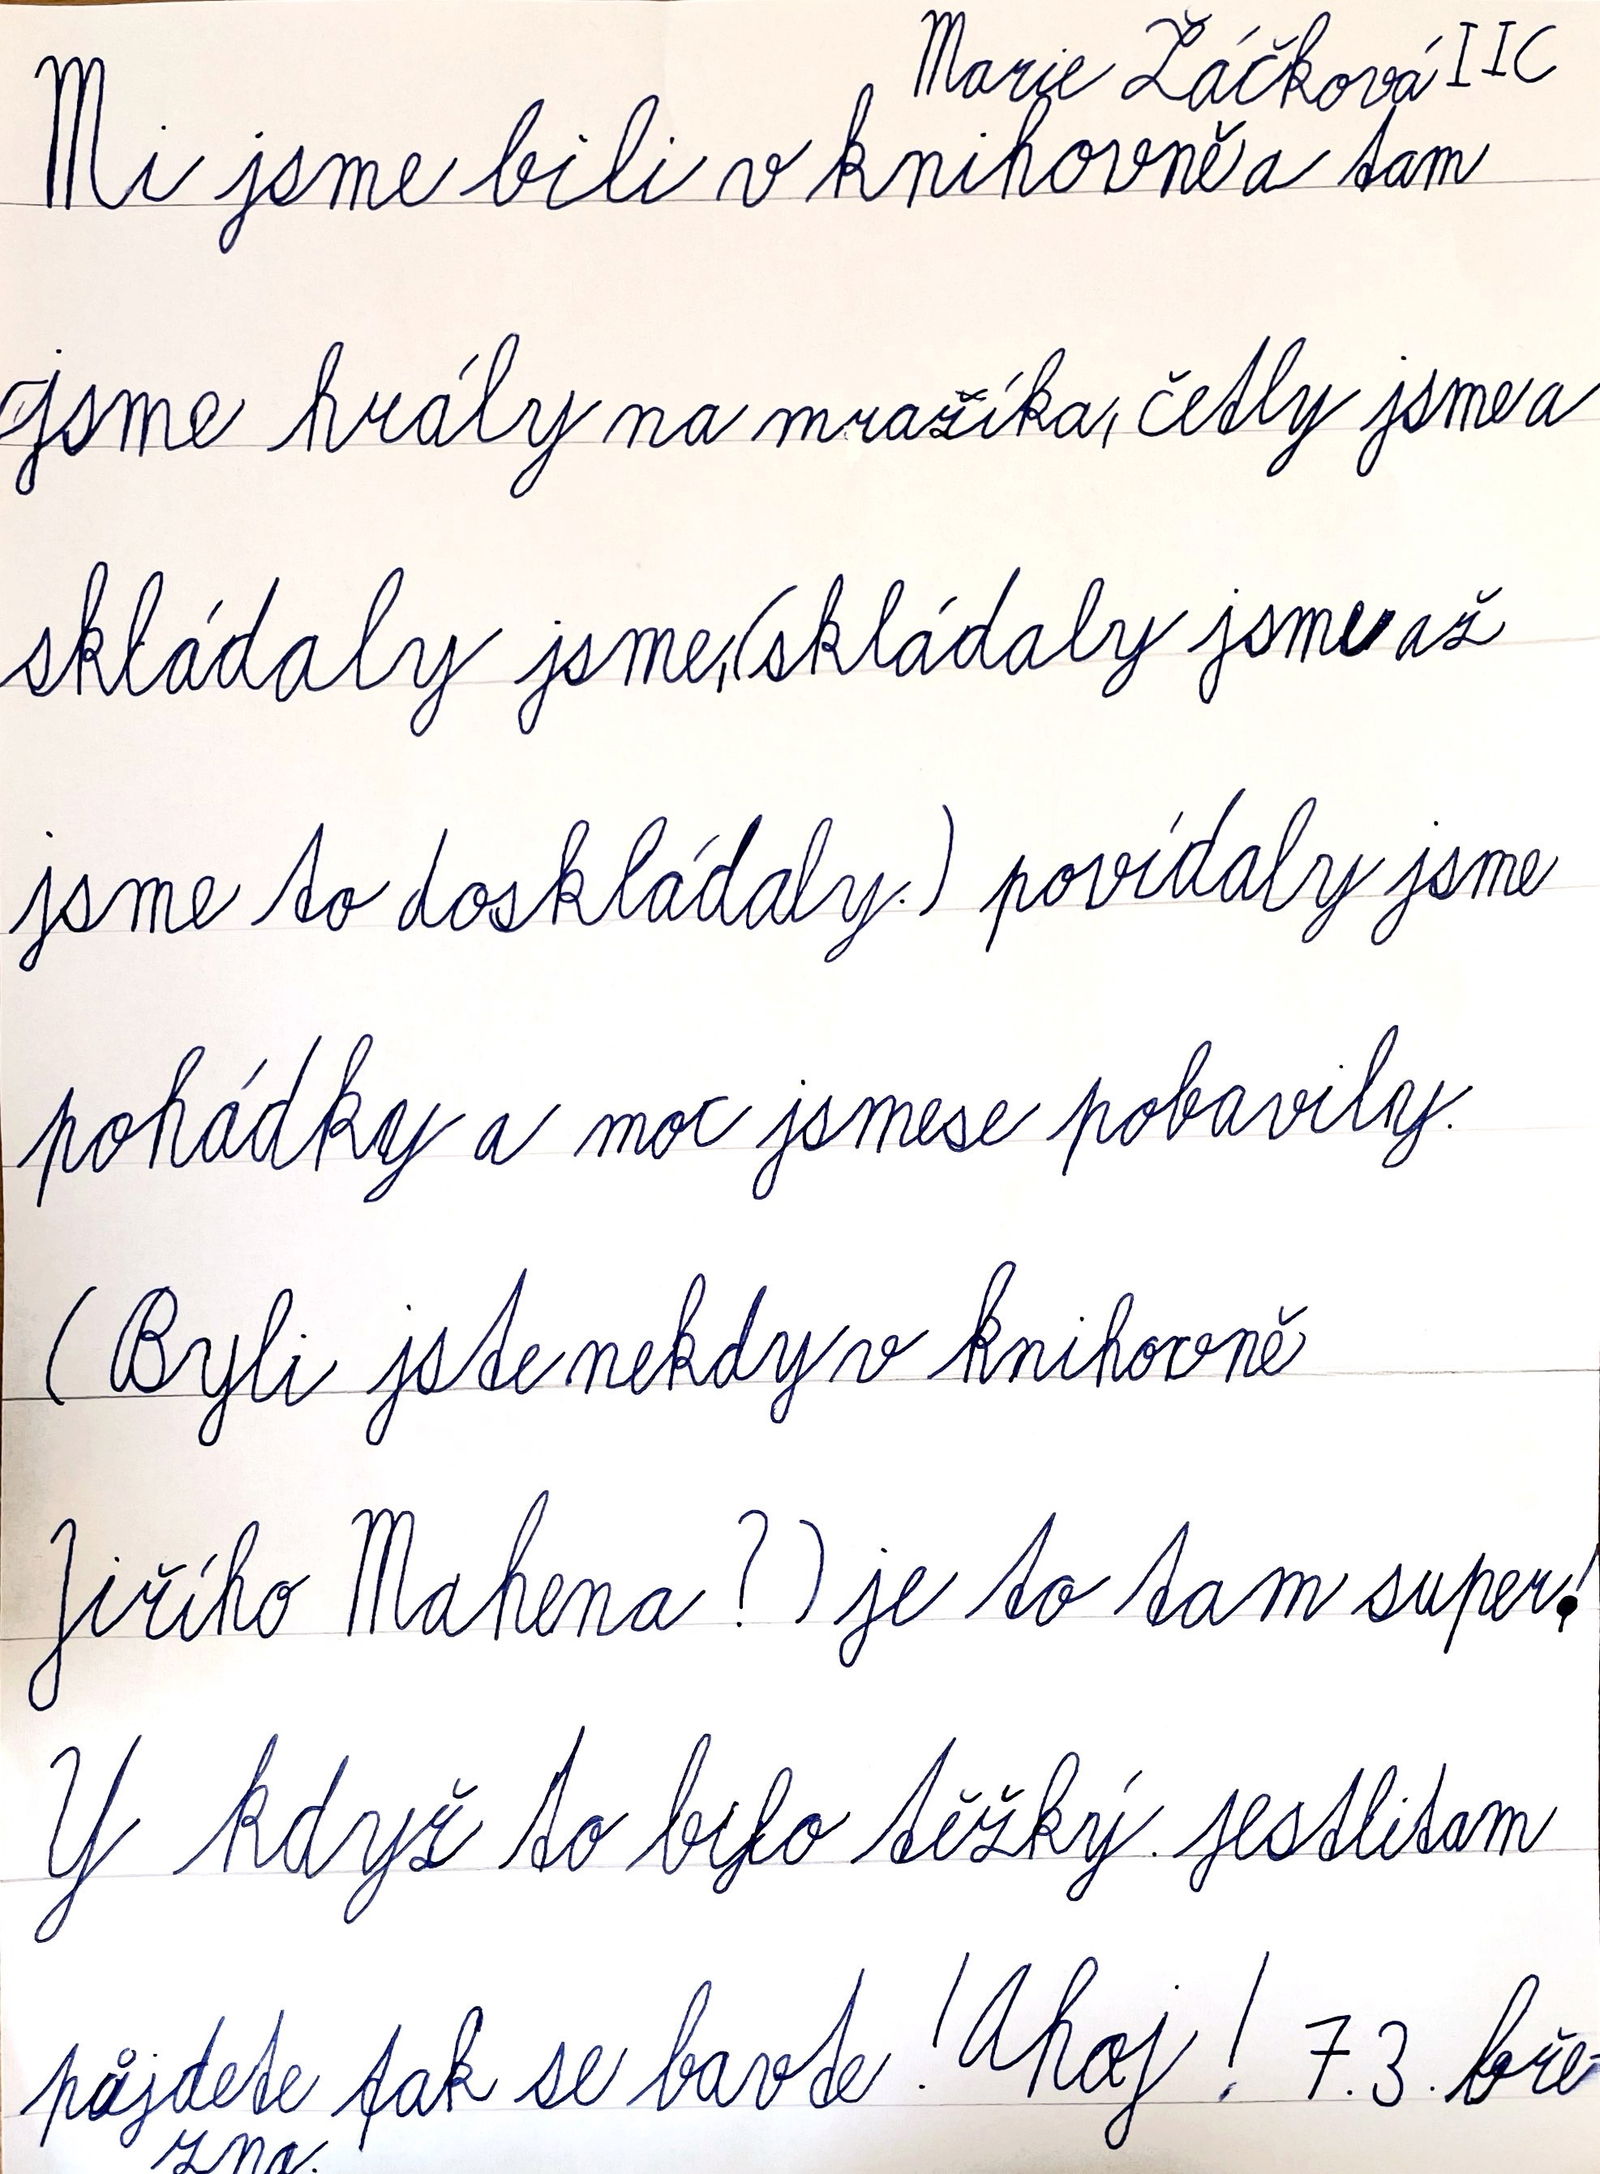 Marie Žáčková IIC
Mi jsme bili v knihovně a tam
jsme hrály na mražíka, četly jsme a
skládaly jsme, (skládaly jsme až
jsme to doskládaly.) povídaly jsme
pohádky a moc jsmese pobavily.
(Byli jste nekdy v knihovně
Jiřího Mahena ?) je to tam super!
Y když to bylo těžký. jestlitam
půjdete tak se bavte ! Ahoj ! 7.3. bře-
zna.